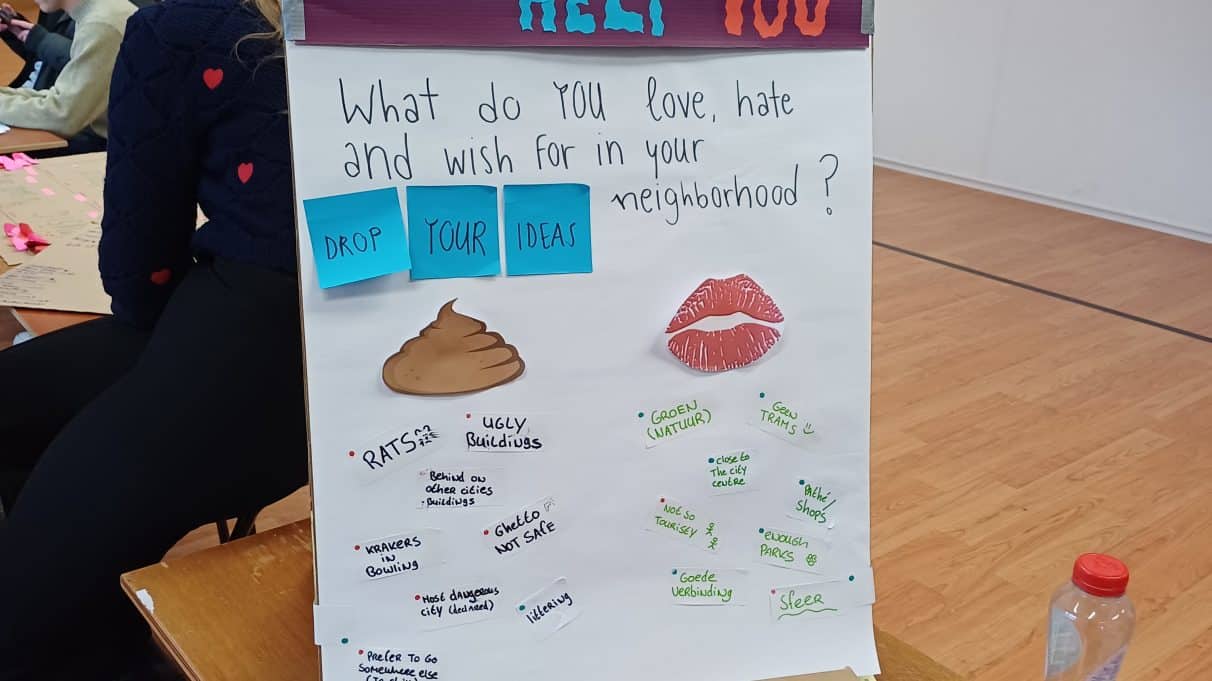 HELP YOU
What do YOU love, hate
and wish for in your
neighborhood?
DROP YOUR IDEAS
RATS
UGLY
Buildings
Behind on
other cities
- Buildings
Ghetto
NOT SAFE
KRAKERS
in
Bowling
Most dangerous
city (declined)
littering
PREFER TO GO
somewhere else
GROEN
(NATUUR)
GEEN
TRAMS
close to
The city
centre
Pathé/
Shops
NOT SO
TOURISTY
enough
PARKS
Goede
verbinding
Sfeer